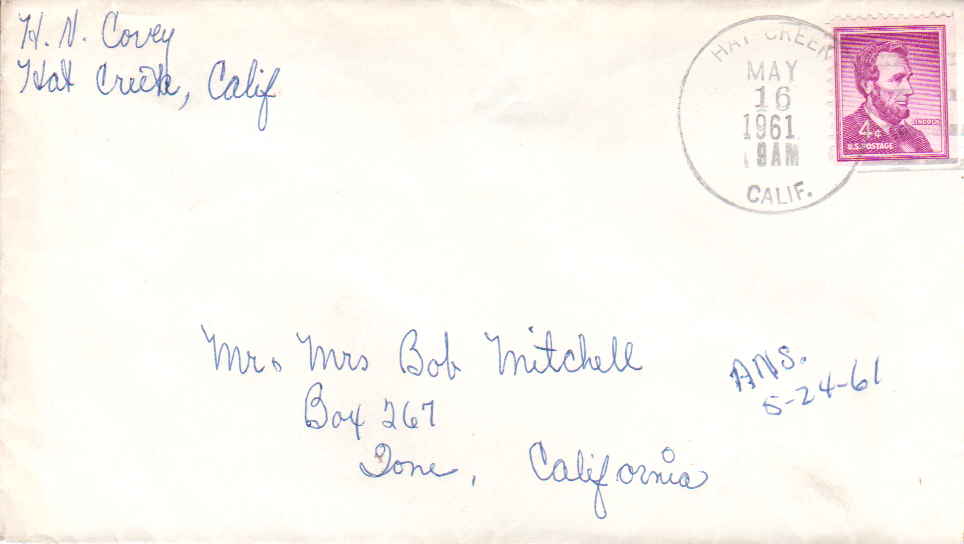 H. N. Covey
Hat Creek, Calif
HAT CREEK
MAY
16
1961
9AM
CALIF.
LINCOLN
4¢
U.S. POSTAGE
Mr. Mrs Bob Mitchell
Box 267
Ione, California
ANS.
5-24-61